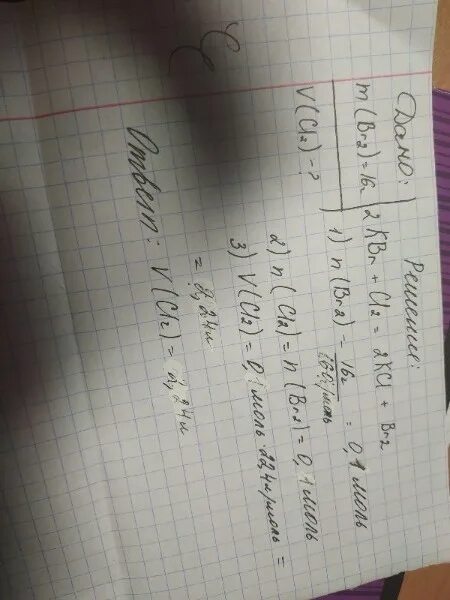 Дано:
m(Br2)=16г
V(Cl2)-?
Решение:
2KBr + Cl2 = 2KCl + Br2
1) n(Br2) = 16г / 160г/моль = 0,1 моль
2) n(Cl2) = n(Br2) = 0,1 моль
3) V(Cl2) = 0,1 моль · 22,4л/моль =
= 2,24л
Ответ: V(Cl2) = 2,24л